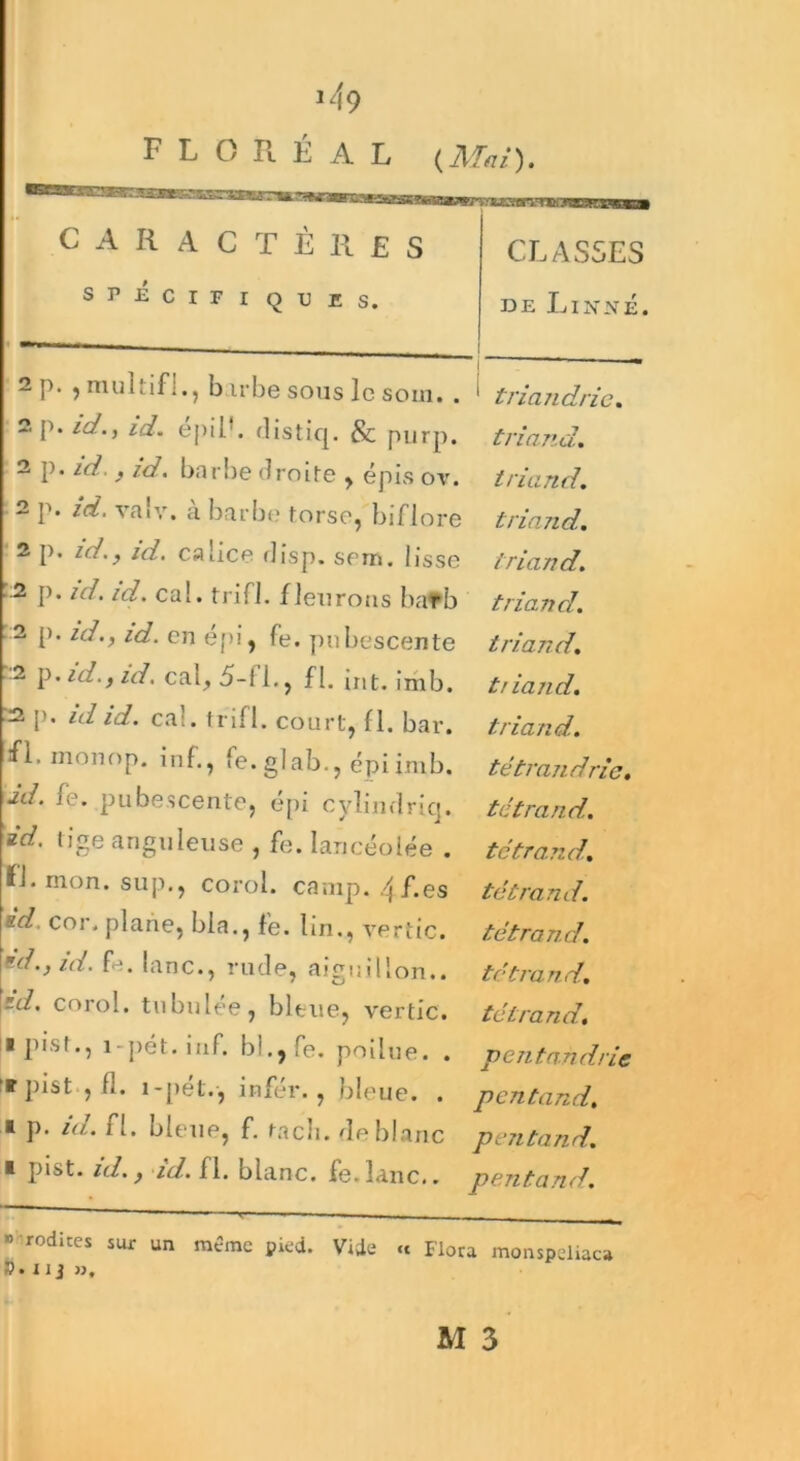 149
FLORÉAL (Mai).
CARACTÈRES
SPÉCIFIQUES.
CLASSES
DE LINNÉ.
2 p. , multifl., barbe sous le som. . triandrie.
2 p. id., id. épil. distiq. & purp. triand.
2 p. id. , id. barbe droite , épis ov. triand.
2 p. id. valv. à barbe torse, biflore triand.
2 p. id., id. calice disp. sem. lisse triand.
2 p. id. id. cal. trifl. fleurons barb triand.
2 p. id., id. en épi, fe. pubescente triand.
2 p. id., id. cal, 5-fl., fl. int. imb. triand.
2 p. id id. cal. trifl. court, fl. bar. triand.
fl. monop. inf., fe. glab., épi imb. tétrandrie.
id. fe. pubescente, épi cylindriq. tétrand.
id. tige anguleuse , fe. lancéolée . tétrand.
fl. mon. sup., corol. camp. 4 f.es tétrand.
id. cor. plane, bla., fe. lin., vertic. tétrand.
id., id. fe. lanc., rude, aiguillon.. tétrand.
id. corol. tubulée, bleue, vertic. tétrand.
1 pist., 1-pét. inf. bl., fe. poilue. . pentandrie
1 pist , fl. 1-pét., infér. , bleue. . pentand.
1 p. id. fl. bleue, f. tach. de blanc pentand.
1 pist. id., id. fl. blanc. fe. lanc.. pentand.
» rodites sur un même pied. Vide « Flora monspeliaca
p. 113 ».
M 3